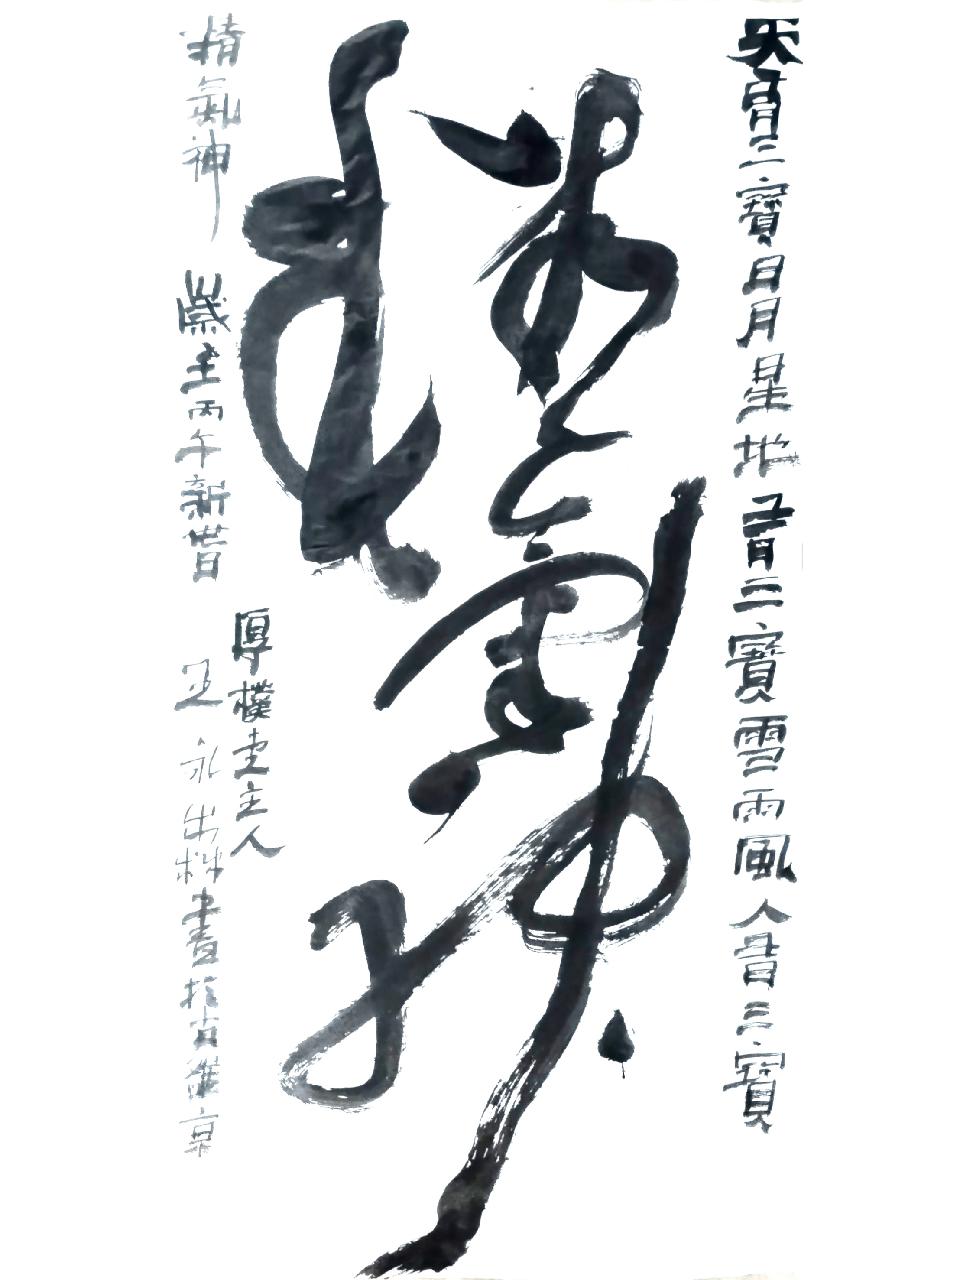 天有三寶日月星地有三寶雪雨風人有三寶
精氣神
精氣神
歲在丙午新春
厚樸堂主人
王永出林書於古燕京